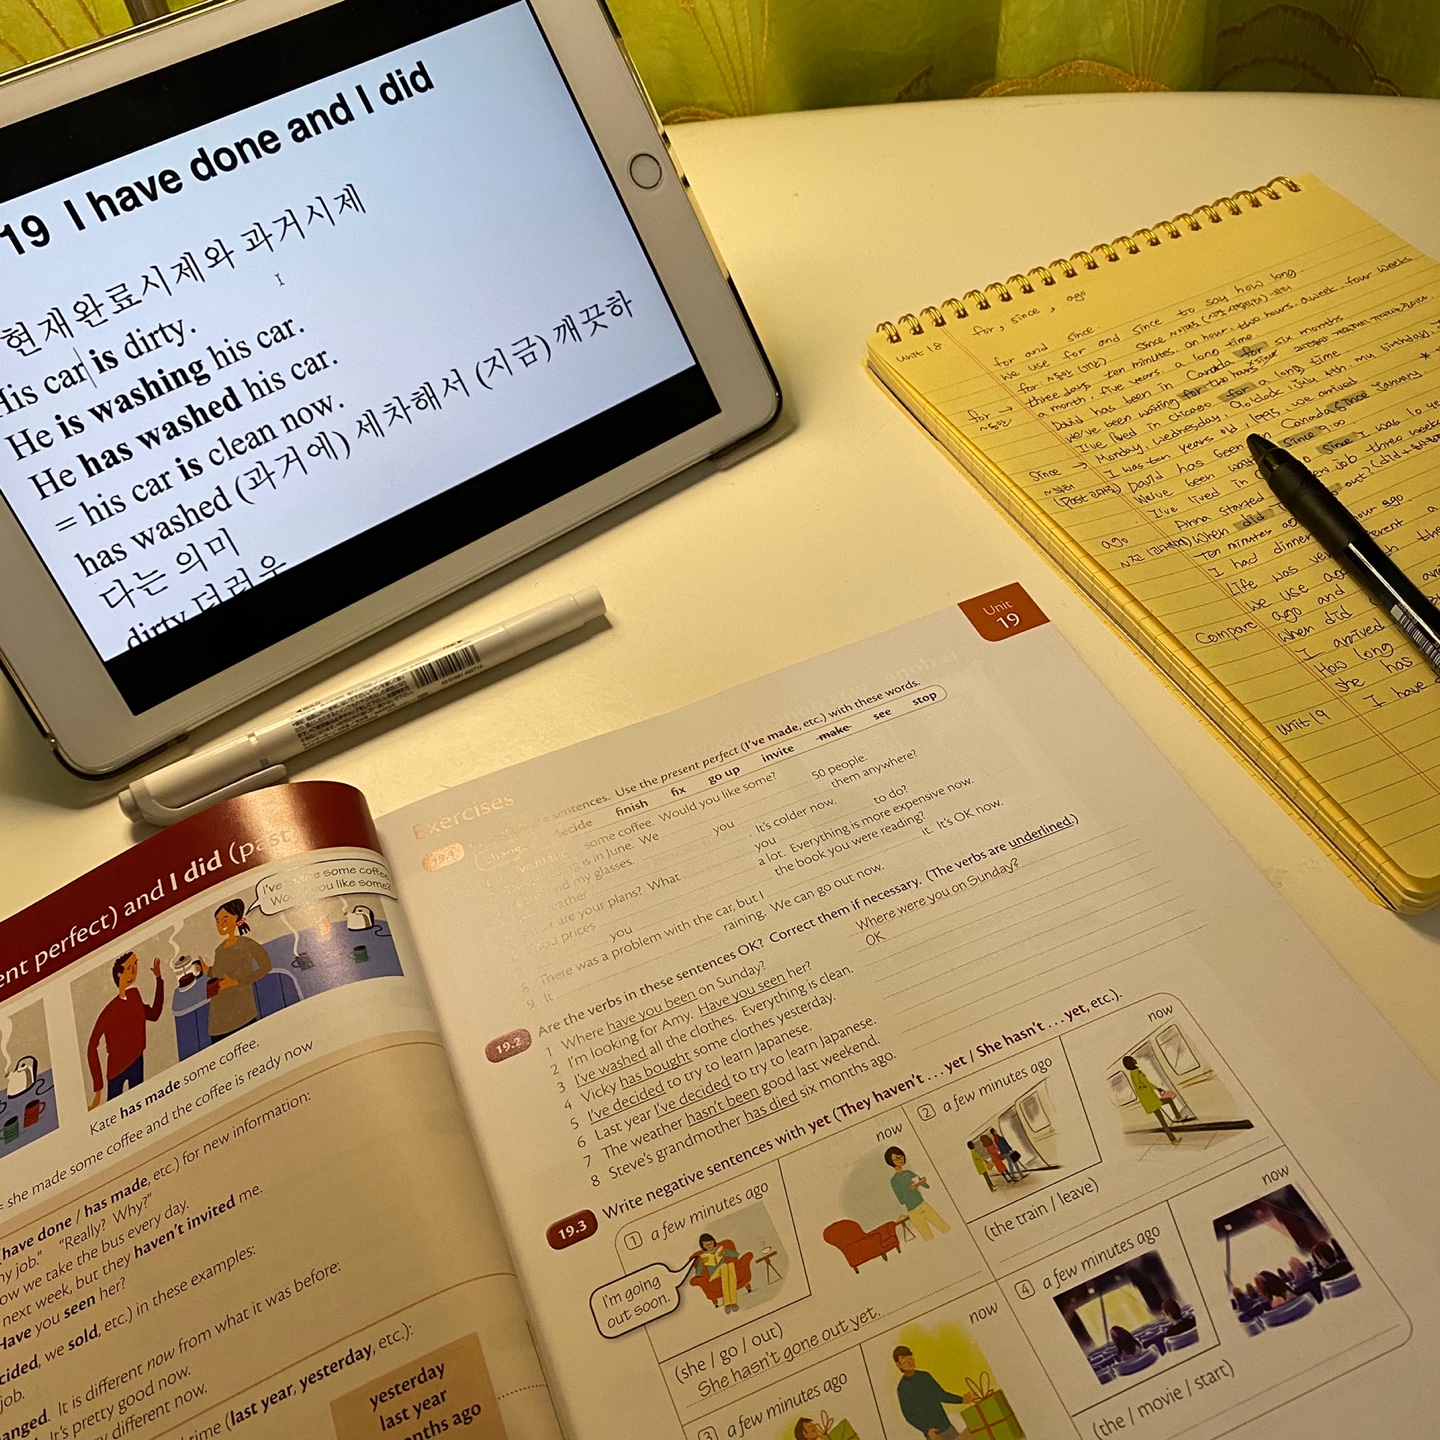 19 I have done and I did
현재완료시제와 과거시제
His car is dirty.
He is washing his car.
He has washed his car.
= his car is clean now.
has washed (과거에) 세차해서 (지금) 깨끗하
다는 의미
dirty 더러운
for, since, ago
Unit 18
for and since
We use for and since to say how long
three days, ten minutes, an hour, two hours, a week, four weeks
a month, five years, a long time, six months
for →
David has been in Canada for
We've been waiting for two hours
I've lived in Chicago for a long time
Since →
Monday, Wednesday, 9 o'clock, July 4th, my birthday,
I was ten years old, 1995, we arrived
David has been Canada since January
We've been since 9:00
I've lived in since I was 10
ago
Anna started new job three weeks
When did out?
Ten minutes
I had dinner hour ago
Life was different a
We use ago
Compare ago and
When did
I arrived
How long
she has
Unit 19 I have
Unit
19
Exercises
19.1
sentences. Use the present perfect (I've made, etc.) with these words.
decide finish fix go up invite make see stop
some coffee. Would you like some?
is in June. We 50 people.
my glasses. you them anywhere?
. It's colder now.
are your plans? What you to do?
prices a lot. Everything is more expensive now.
you the book you were reading?
8 There was a problem with the car, but I it. It's OK now.
9 It raining. We can go out now.
19.2 Are the verbs in these sentences OK? Correct them if necessary. (The verbs are underlined.)
1 Where have you been on Sunday? Where were you on Sunday?
2 I'm looking for Amy. Have you seen her? OK
3 I've washed all the clothes. Everything is clean.
4 Vicky has bought some clothes yesterday.
5 I've decided to try to learn Japanese.
6 Last year I've decided to try to learn Japanese.
7 The weather hasn't been good last weekend.
8 Steve's grandmother has died six months ago.
19.3 Write negative sentences with yet (They haven't . . . yet / She hasn't . . . yet, etc.).
1 a few minutes ago
now
I'm going
out soon.
(she / go / out)
She hasn't gone out yet.
2 a few minutes ago
now
(the train / leave)
3 a few minutes ago
now
4 a few minutes ago
now
(the / movie / start)
ent perfect) and I did (past
I've made some coffee.
Would you like some?
Kate has made some coffee.
= she made some coffee and the coffee is ready now
have done / has made, etc.) for new information:
my job." "Really? Why?"
now we take the bus every day.
next week, but they haven't invited me.
Have you seen her?
cided, we sold, etc.) in these examples:
job.
anged. It is different now from what it was before:
It's pretty good now.
different now.
time (last year, yesterday, etc.):
yesterday
last year
months ago